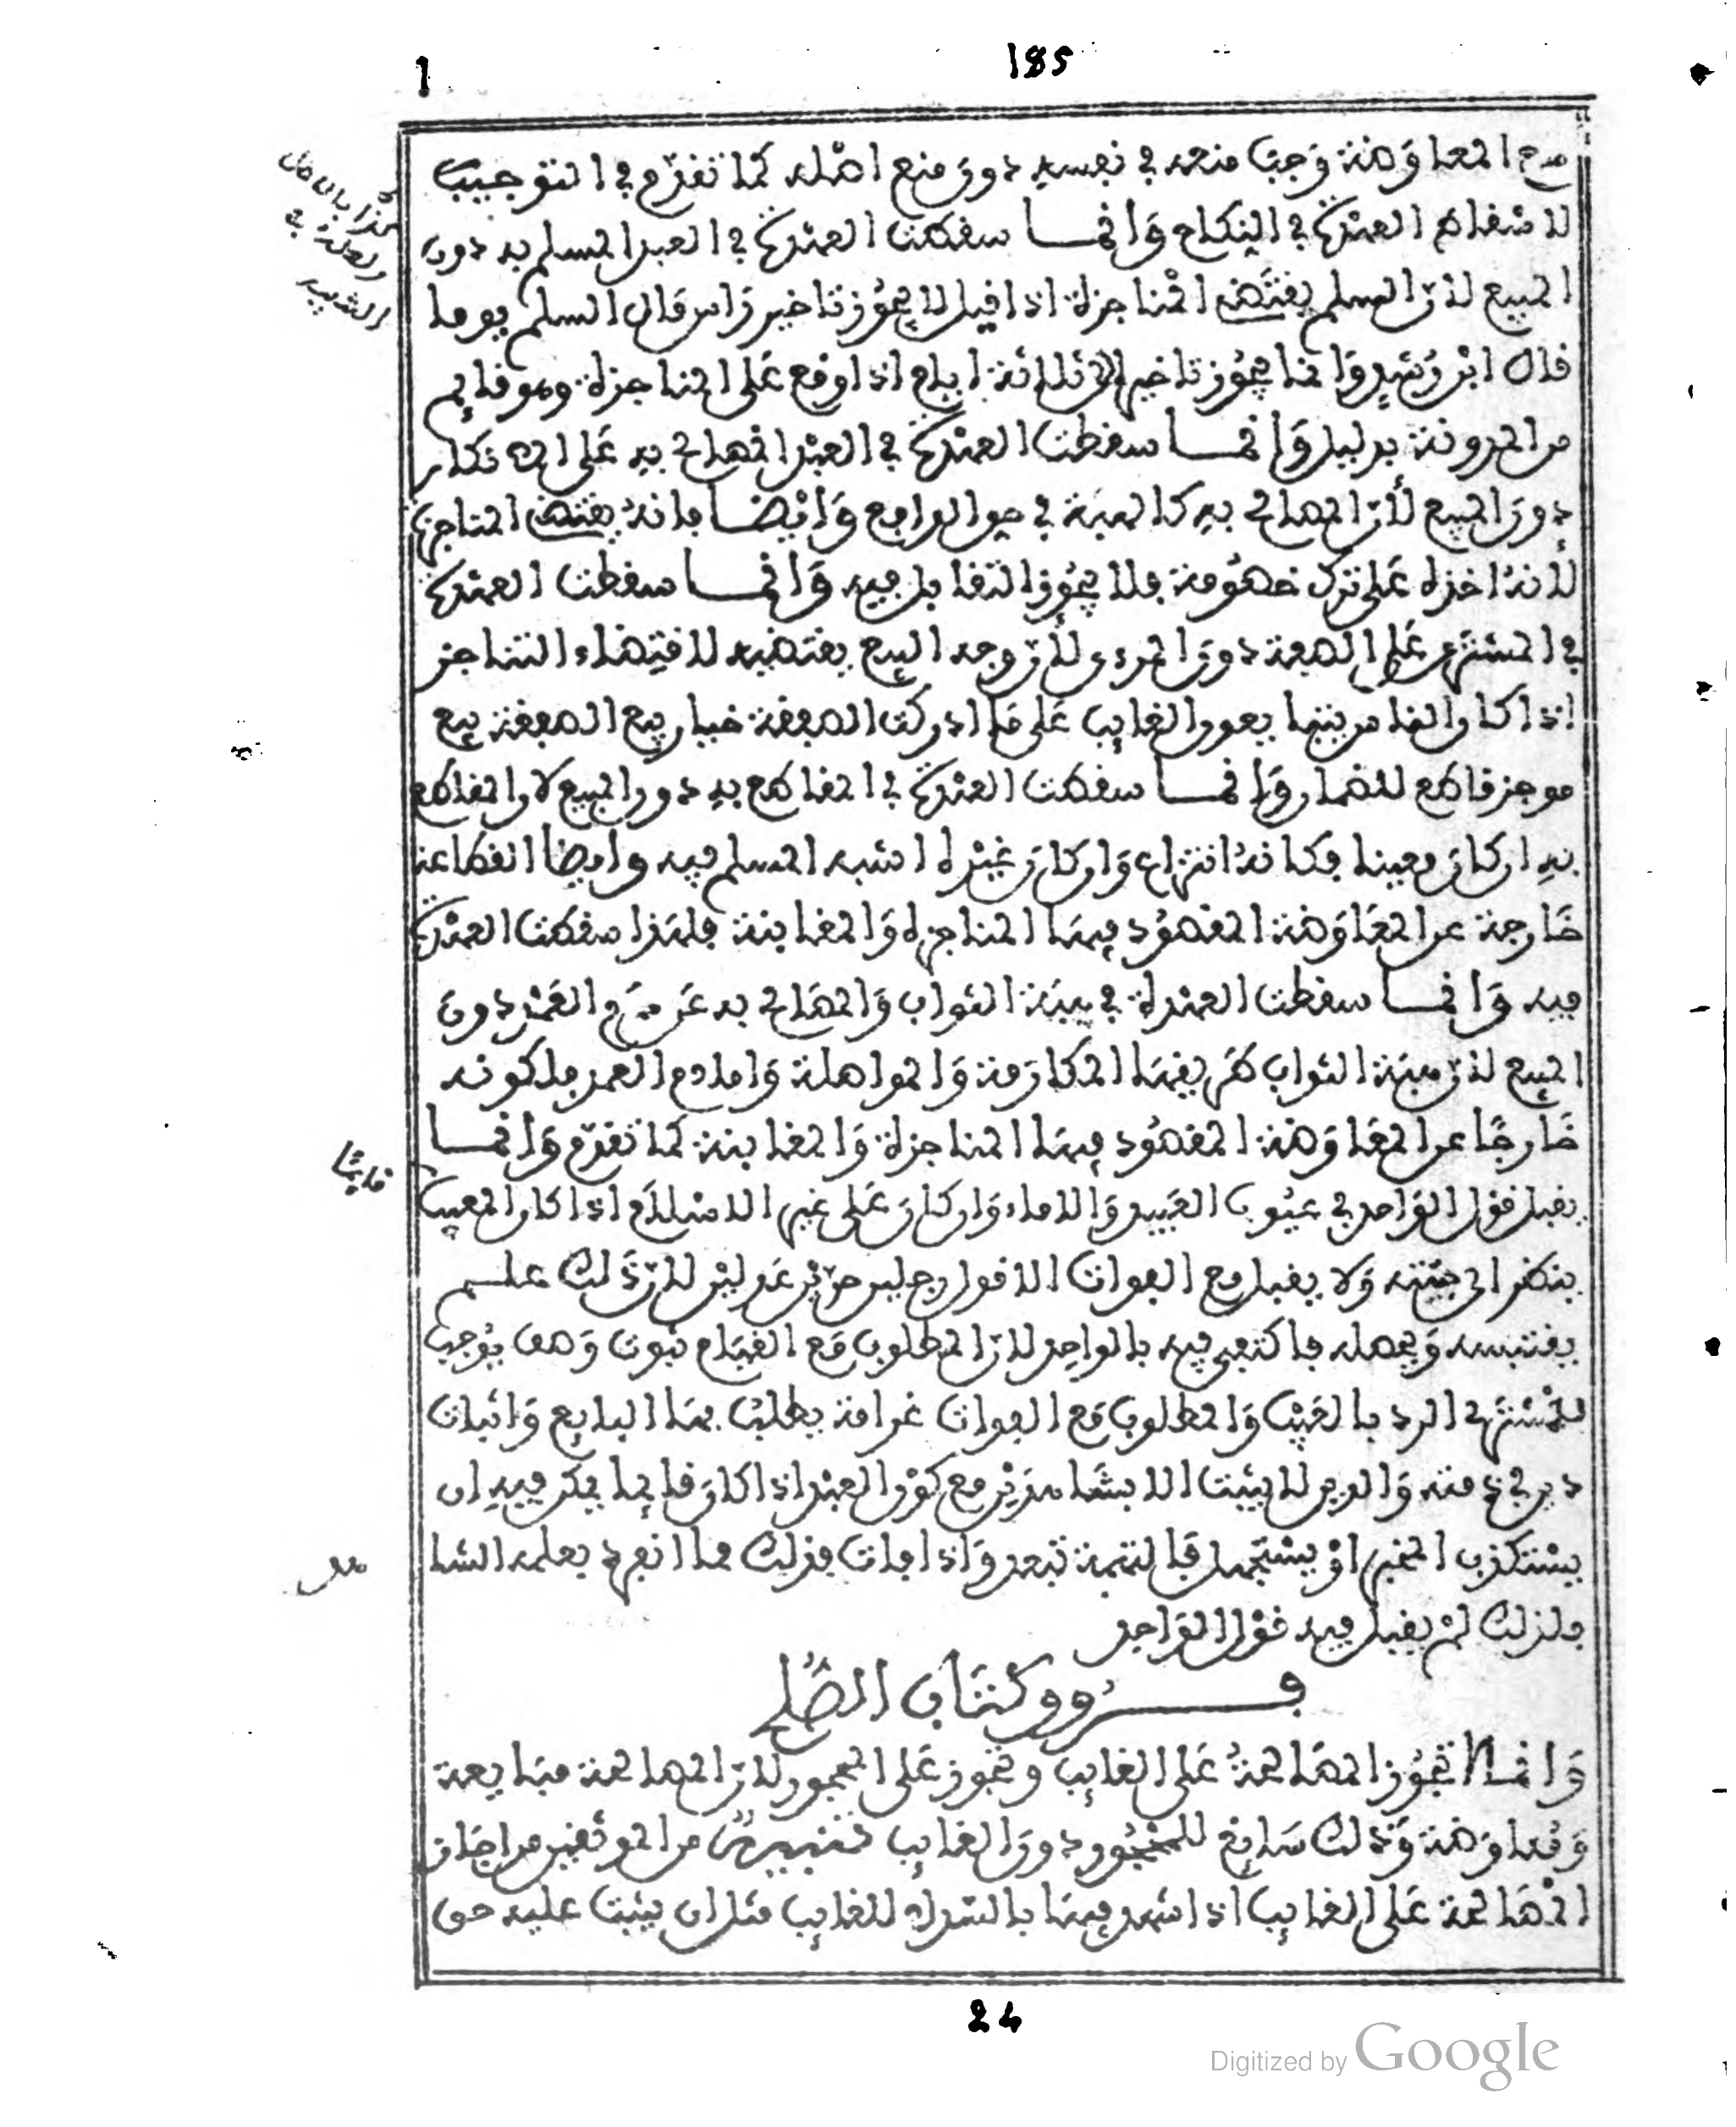 185
1
من المعاوضة وجب منعه في نفسه دون منع اصله كما تقدم في التوجيب
لاسقاط العهدة في النكاح وانما سقطت العهدة في العبد المسلم به دون
المبيع لان السلم يقتضي المناجزة اذا قيل لا يجوز تاخير راس مال السلم يوما
قال ابن رشد وانما يجوز تاخيره ثلاثة ايام اذا وقع على المناجزة وهو قايم
من المدونة بدليل وانما سقطت العهدة في العبد المصالح به على الانكار
دون المبيع لأن المصالح به كالهبة في حق الدافع وايضا فانه يقتضي المناجزة
لأنه اخذه على ترك خصومة فلا يجوز التقابل فيه وانما سقطت العهدة
في المشترى على الصفة دون المرءى لأن وجه البيع يقتضيه لاقتضاء التناجز
اذا كان القا من بيتها يعود الغايب على ما ادركت الصفقة خيار بيع الصفقة بيع
موجز قاطع للضمان وانما سقطت العهدة في المقاطع به دون المبيع لان المقاطع
به ان كان معينا فكانه انتزاع وان كان غيره اشبه المسلم فيه وايضا القطاعة
خارجة عن المعاوضة المقصود فيها المناجزة والمغابنة فلهذا سقطت العهدة
فيه وانما سقطت العهدة في هبة الثواب والمصالح به عن دم العمد دون
المبيع لان هبة الثواب طريقها المكارمة والمواصلة واما دم العمد فلكونه
خارجا عن المعاوضة المقصود فيها المناجزة والمغابنة كما تقدم وانما
يقبل قول الواحد في عيوب العبيد والاماء وان كان على غير الاسلام اذا كان المعيب
ينظر الى جثته ولا يقبل مع الفوات الا قول رجلين حرين عدلين لان ذلك علم
يقتبسه ويحصله فاكتفي فيه بالواحد لان المطلوب مع القيام ثبوت وصف يوجب
للمشتري الرد بالعيب والمطلوب مع الفوات غرامة يطلب بها البايع واثبات
دين في ذمته والدين لا يثبت الا بشاهدين مع كون العبد اذا كان قايما يمكن فيه ان
يستكذب المخبر او يستجهل فالتهمة تبعد واذا فات فذلك مما انفرد بعلمه الشا
هد
فلذلك لم يقبل فيه قول الواحد
فروق كتاب الصلح
وانما لا تجوز المصالحة على الغايب وتجوز على المحجور لان المصالحة مبايعة
ومعاوضة وذلك سايغ للمحجور دون الغايب تنبيه من الموثقين من اجاز
المصالحة على الغايب اذا اشهد فيها بالسداد للغايب مثل ان يثبت عليه حق
قايما
24
Digitized by Google